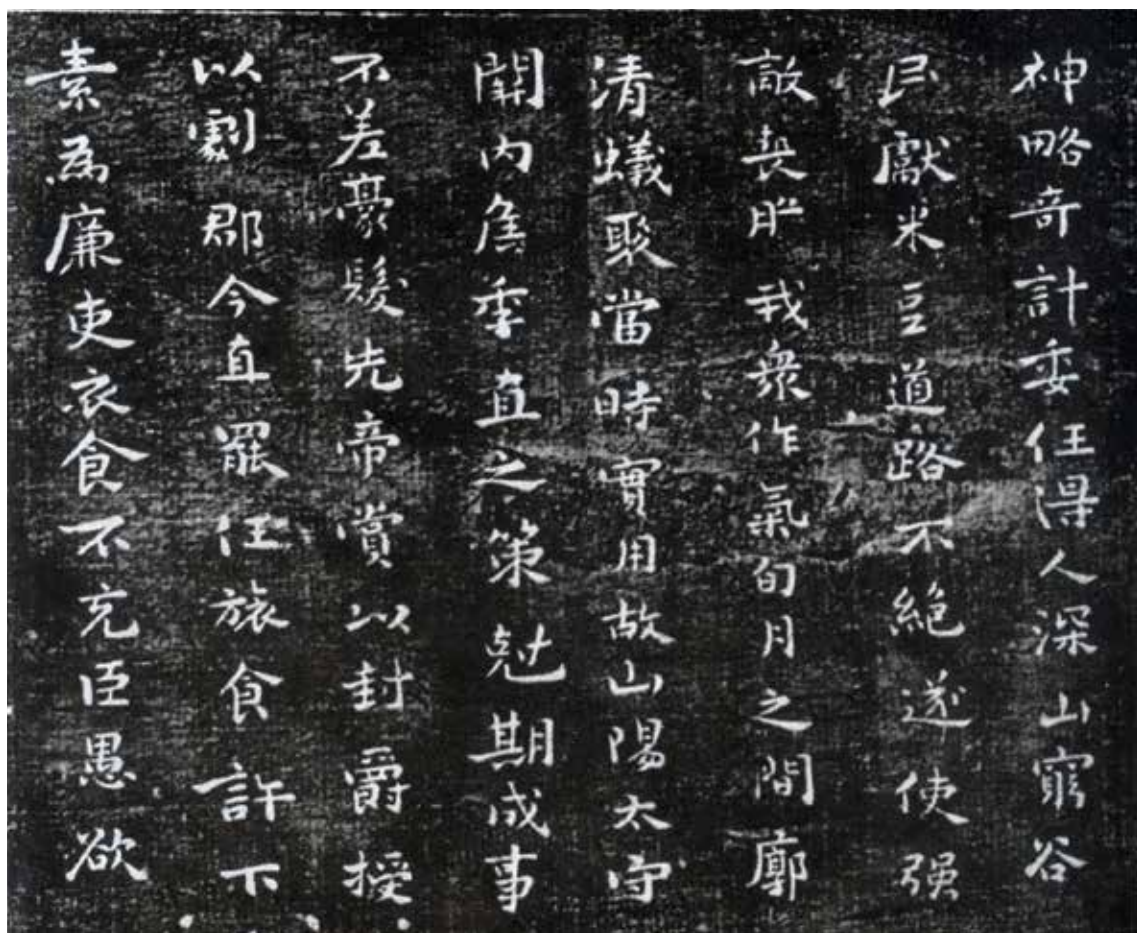 神略奇計委任得人深山窮谷
民獻米豆道路不絕遂使强
敵喪膽我衆作氣旬月之間廓
清蟻聚當時實用故山陽太守
關內侯季直之策尅期成事
不差豪髮先帝賞以封爵授
以劇郡今直罷任旅食許下
素爲廉吏衣食不充臣愚欲